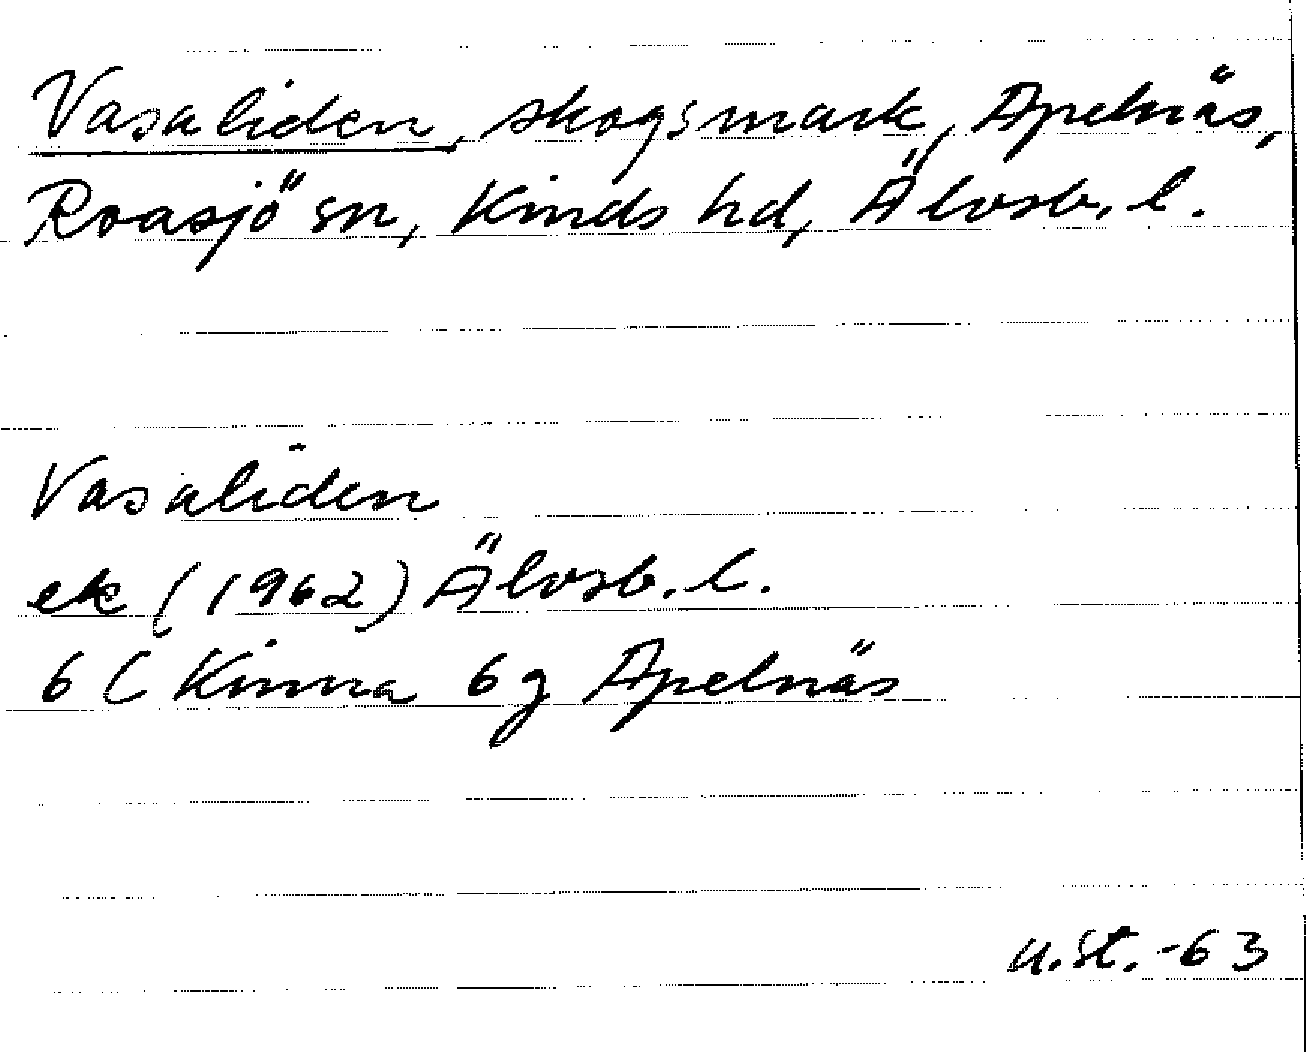 Vasaliden, skogsmark, Apelnäs,
Roasjö sn, Kinds hd, Älvsb. l.
Vasaliden
ek (1962) Älvsb. l.
6 C Kinna 6g Apelnäs
u.st. -63